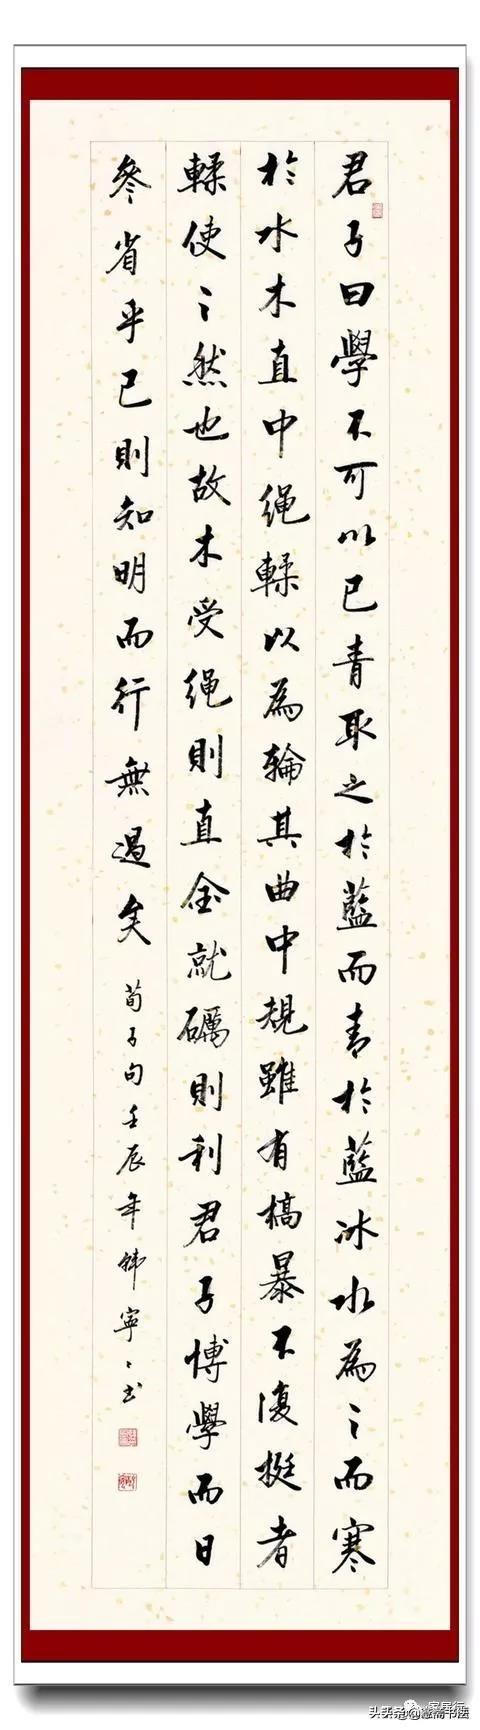 君子曰學不可以已青取之於藍而青於藍冰水為之而寒
於水木直中繩輮以為輪其曲中規雖有槁暴不復挺者
輮使之然也故木受繩則直金就礪則利君子博學而日
參省乎己則知明而行無過矣
荀子句壬辰年韩寧寧书
头条